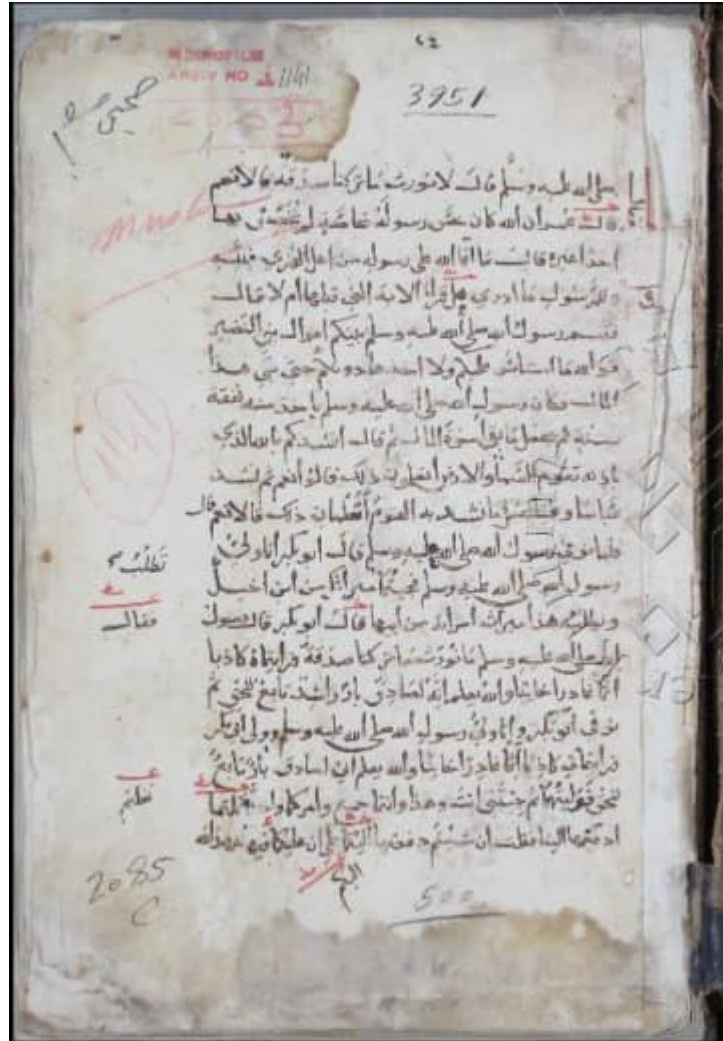 ٤٢
MICROFILM
ARSIV NO
3951
صلى الله عليه وسلم قال لا نورث ما تركنا صدقة قالا نعم
قال عمر ان الله كان خص رسوله بخاصة لم يخصص بها
احدا غيره قال ما أفاء الله على رسوله من اهل القرى فلله
وللرسول ما ادري هل قرأ الاية التي قبلها ام لا قال
فقسم رسول الله صلى الله عليه وسلم بينكم اموال بني النضير
فوالله ما استاثر عليكم ولا اخذها دونكم حتى بقي هذا
المال فكان رسول الله صلى الله عليه وسلم ياخذ منه نفقة
سنة ثم يجعل ما بقي أسوة المال ثم قال أنشدكم بالله الذي
باذنه تقوم السماء والارض أتعلمون ذلك قالوا نعم ثم نشد
عباسا وعليا بمثل ما نشد به القوم أتعلمان ذلك قالا نعم قال
فلما توفي رسول الله صلى الله عليه وسلم قال أبو بكر أنا ولي
رسول الله صلى الله عليه وسلم فجئتما ميراثك من ابن اخيك
ويطلب هذا ميراث امرأته من أبيها قال أبو بكر قال رسول
الله صلى الله عليه وسلم ما نورث ما تركنا صدقة فرأيتماه كاذبا
آثما غادرا خائنا والله يعلم انه لصادق بار راشد تابع للحق ثم
توفي أبو بكر وأنا ولي رسول الله صلى الله عليه وسلم وولي أبي بكر
فرأيتماني كاذبا آثما غادرا خائنا والله يعلم اني لصادق بار تابع
للحق فوليتها ثم جئتني أنت وهذا وأنتما جميع وأمركما واحد فقلتما
ادفعها الينا فقلت ان شئتم دفعتها اليكما على ان عليكما عهد الله
تطلب
فقال
2085
500